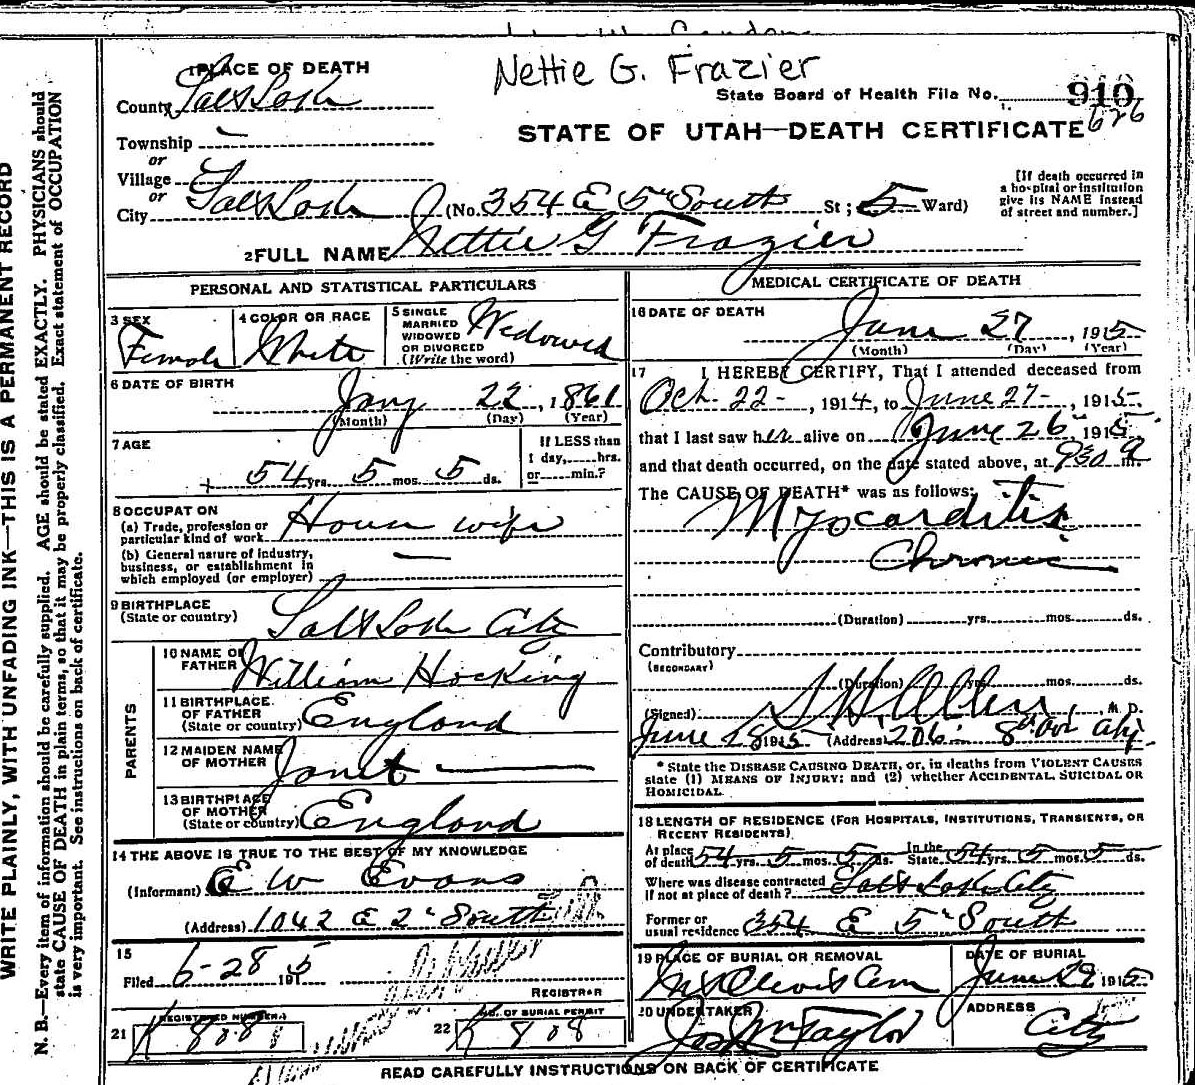 WRITE PLAINLY, WITH UNFADING INK—THIS IS A PERMANENT RECORD
N. B.—Every item of information should be carefully supplied. AGE should be stated EXACTLY. PHYSICIANS should
state CAUSE OF DEATH in plain terms, so that it may be properly classified. Exact statement of OCCUPATION
is very important. See instructions on back of certificate.
Nettie G. Frazier
1 PLACE OF DEATH
County Salt Lake
State Board of Health File No. 910
626
STATE OF UTAH—DEATH CERTIFICATE
Township
or
Village
or
City Salt Lake (No. 354 E 5" South St; 5 Ward)
[If death occurred in
a hospital or institution
give its NAME instead
of street and number.]
2 FULL NAME Nettie G Frazier
PERSONAL AND STATISTICAL PARTICULARS
3 SEX
Female
4 COLOR OR RACE
White
5 SINGLE
MARRIED
WIDOWED
OR DIVORCED
(Write the word)
Widowed
6 DATE OF BIRTH
Jany 22, 1861
(Month) (Day) (Year)
7 AGE
54 yrs. 5 mos. 5 ds.
If LESS than
1 day,.....hrs.
or.....min.?
8 OCCUPATION
(a) Trade, profession or
particular kind of work House wife
(b) General nature of industry,
business, or establishment in
which employed (or employer)
9 BIRTHPLACE
(State or country) Salt Lake City
PARENTS
10 NAME OF
FATHER William Hocking
11 BIRTHPLACE
OF FATHER
(State or country) England
12 MAIDEN NAME
OF MOTHER Janet
13 BIRTHPLACE
OF MOTHER
(State or country) England
14 THE ABOVE IS TRUE TO THE BEST OF MY KNOWLEDGE
(Informant) E W Evans
(Address) 1042 E 2" South
15
Filed 6-28 1915
REGISTRAR
21 REGISTERED NUMBER
K 808
22 NO. OF BURIAL PERMIT
K 808
MEDICAL CERTIFICATE OF DEATH
16 DATE OF DEATH
June 27, 1915
(Month) (Day) (Year)
17 I HEREBY CERTIFY, That I attended deceased from
Oct. 22-, 1914, to June 27-, 1915-
that I last saw her alive on June 26 1915
and that death occurred, on the date stated above, at 930 a m.
The CAUSE OF DEATH* was as follows:
Myocarditis
Chronic
(Duration) yrs. mos. ds.
Contributory
(SECONDARY)
(Duration) yrs. mos. ds.
(Signed) S H Allen, M. D.
June 28 1915 (Address) 206 City
* State the DISEASE CAUSING DEATH, or, in deaths from VIOLENT CAUSES
state (1) MEANS OF INJURY; and (2) whether ACCIDENTAL, SUICIDAL OR
HOMICIDAL.
18 LENGTH OF RESIDENCE (FOR HOSPITALS, INSTITUTIONS, TRANSIENTS, OR
RECENT RESIDENTS)
At place of death 54 yrs. 5 mos. 5 ds. In the State 54 yrs. 5 mos. 5 ds.
Where was disease contracted
If not at place of death? Salt Lake City
Former or
usual residence 354 E 5" South
19 PLACE OF BURIAL OR REMOVAL
Mt Olivet Cem
DATE OF BURIAL
June 29 1915
20 UNDERTAKER
Jos Wm Taylor
ADDRESS
City
READ CAREFULLY INSTRUCTIONS ON BACK OF CERTIFICATE